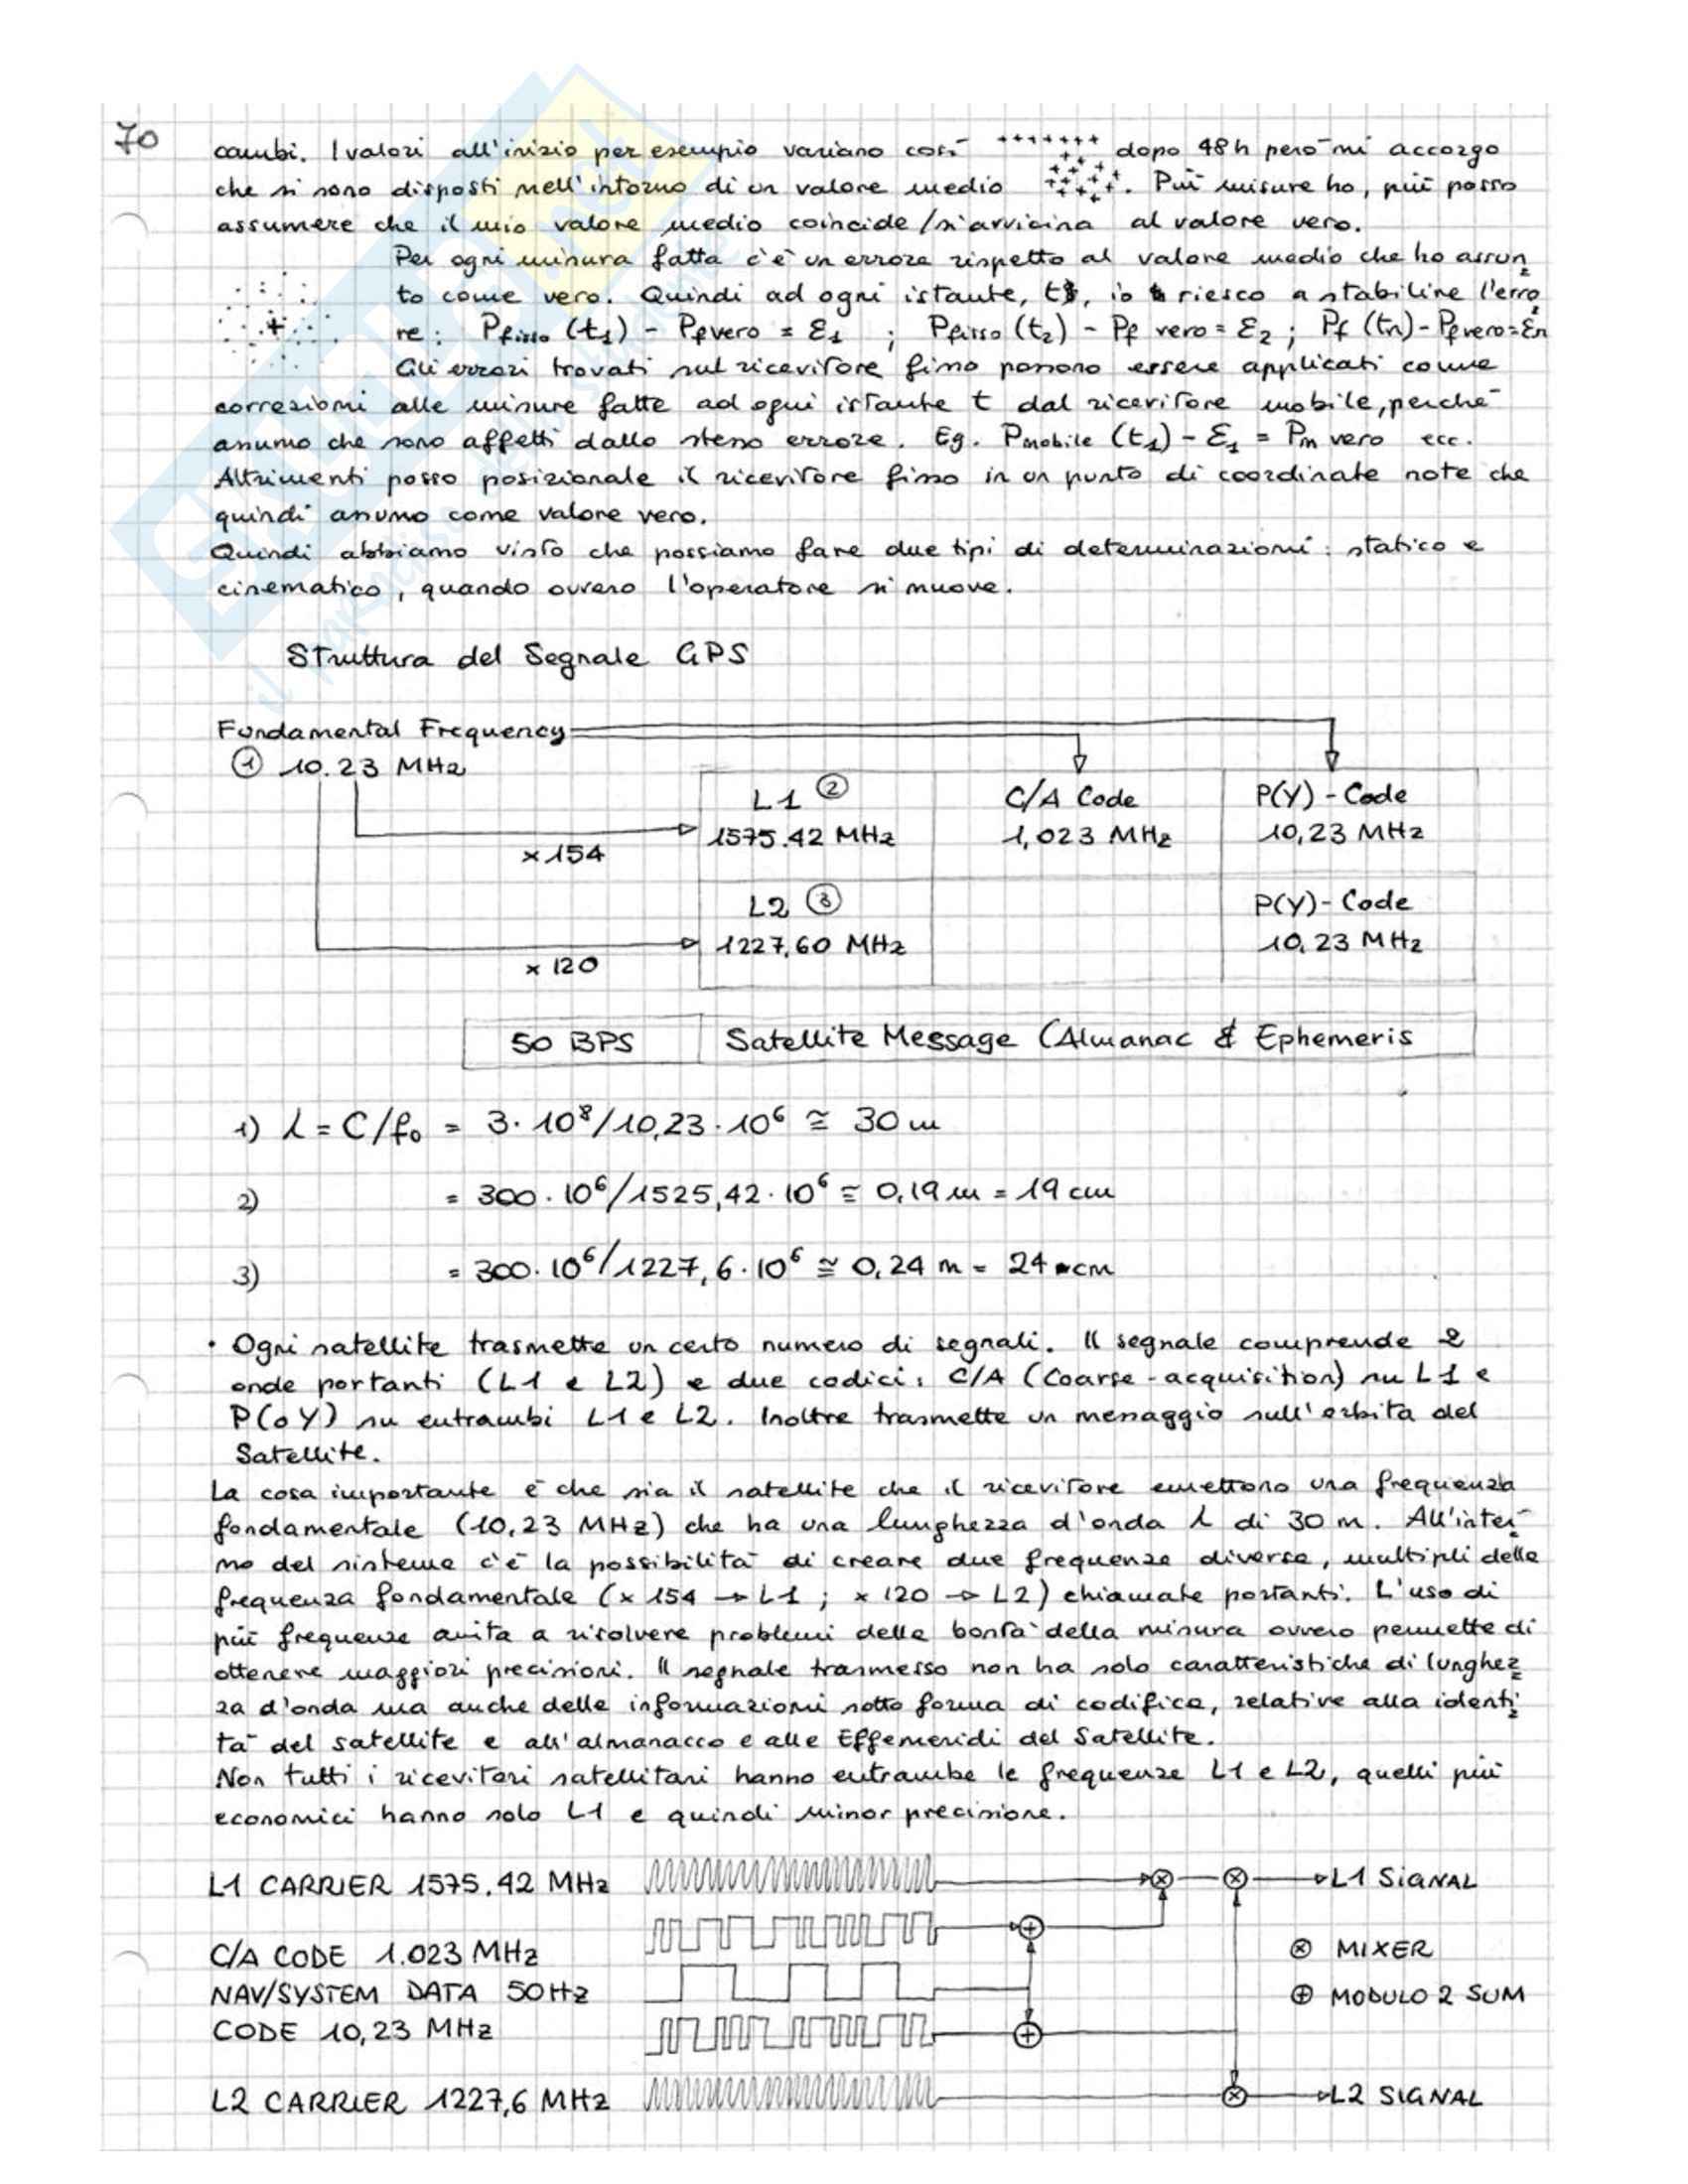 70
cambi. I valori all'inizio per esempio variano così +++++++ dopo 48h però mi accorgo
che si sono disposti nell'intorno di un valore medio. Più misure ho, più posso
assumere che il mio valore medio coincide/s'avvicina al valore vero.
Per ogni misura fatta c'è un errore rispetto al valore medio che ho assun
to come vero. Quindi ad ogni istante, t, io riesco a stabilire l'erro
re: Pfisso (t1) - Pfvero = ε1 ; Pfisso (t2) - Pf vero = ε2 ; Pf (tn) - Pfvero = εn
Gli errori trovati sul ricevitore fisso possono essere applicati come
correzioni alle misure fatte ad ogni istante t dal ricevitore mobile, perché
assumo che sono affetti dallo stesso errore. Eg. Pmobile (t1) - ε1 = Pm vero ecc.
Altrimenti posso posizionale il ricevitore fisso in un punto di coordinate note che
quindi assumo come valore vero.
Quindi abbiamo visto che possiamo fare due tipi di determinazioni: statico e
cinematico, quando ovvero l'operatore si muove.
Struttura del Segnale GPS
Fundamental Frequency
① 10.23 MHz
L1 ② C/A Code P(Y) - Code
1575.42 MHz 1,023 MHz 10,23 MHz
x 154
L2 ③ P(Y) - Code
1227,60 MHz 10,23 MHz
x 120
50 BPS Satellite Message (Almanac & Ephemeris
1) λ = C/f0 = 3·10⁸/10,23·10⁶ ≅ 30 m
2) = 300·10⁶/1525,42·10⁶ ≅ 0,19 m = 19 cm
3) = 300·10⁶/1227,6·10⁶ ≅ 0,24 m = 24 cm
• Ogni satellite trasmette un certo numero di segnali. Il segnale comprende 2
onde portanti (L1 e L2) e due codici: C/A (Coarse-acquisition) su L1 e
P(o Y) su entrambi L1 e L2. Inoltre trasmette un messaggio sull'orbita del
Satellite.
La cosa importante è che sia il satellite che il ricevitore emettono una frequenza
fondamentale (10,23 MHz) che ha una lunghezza d'onda λ di 30 m. All'inter
no del sistema c'è la possibilità di creare due frequenze diverse, multipli della
frequenza fondamentale (x 154 → L1 ; x 120 → L2) chiamate portanti. L'uso di
più frequenze aiuta a risolvere problemi della bontà della misura ovvero permette di
ottenere maggiori precisioni. Il segnale trasmesso non ha solo caratteristiche di lunghez
za d'onda ma anche delle informazioni sotto forma di codifica, relative alla identi
tà del satellite e all'almanacco e alle Effemeridi del Satellite.
Non tutti i ricevitori satellitari hanno entrambe le frequenze L1 e L2, quelli più
economici hanno solo L1 e quindi minor precisione.
L1 CARRIER 1575.42 MHz L1 SIGNAL
C/A CODE 1.023 MHz ⊗ MIXER
NAV/SYSTEM DATA 50Hz ⊕ MODULO 2 SUM
CODE 10,23 MHz
L2 CARRIER 1227,6 MHz L2 SIGNAL